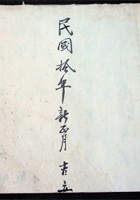 民國拾年新正月 吉立